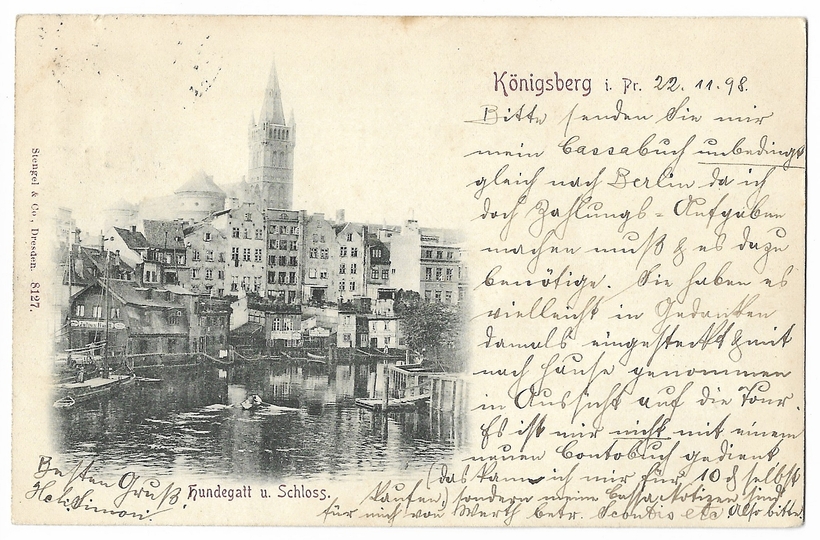 Königsberg i. Pr. 22. 11. 98.
Bitte senden Sie mir
mein Cassabuch unbedingt
gleich nach Berlin da ich
doch Zahlungs-Aufgaben
machen muß & es dazu
benötige. Sie haben es
vielleicht in Gedanken
damals eingesteckt & mit
nach Hause genommen
in Aussicht auf die Tour.
Es ist mir nicht mit einem
neuen Contobuch gedient
(das kann ich mir für 10 ₰ selbst
kaufen) sondern meine Cassa-Notizen sind
für mich von Werth betr. Scontis etc Also bitte.
Besten Gruß
Simon.
Hundegatt u. Schloss.
Stengel & Co., Dresden. 8127.